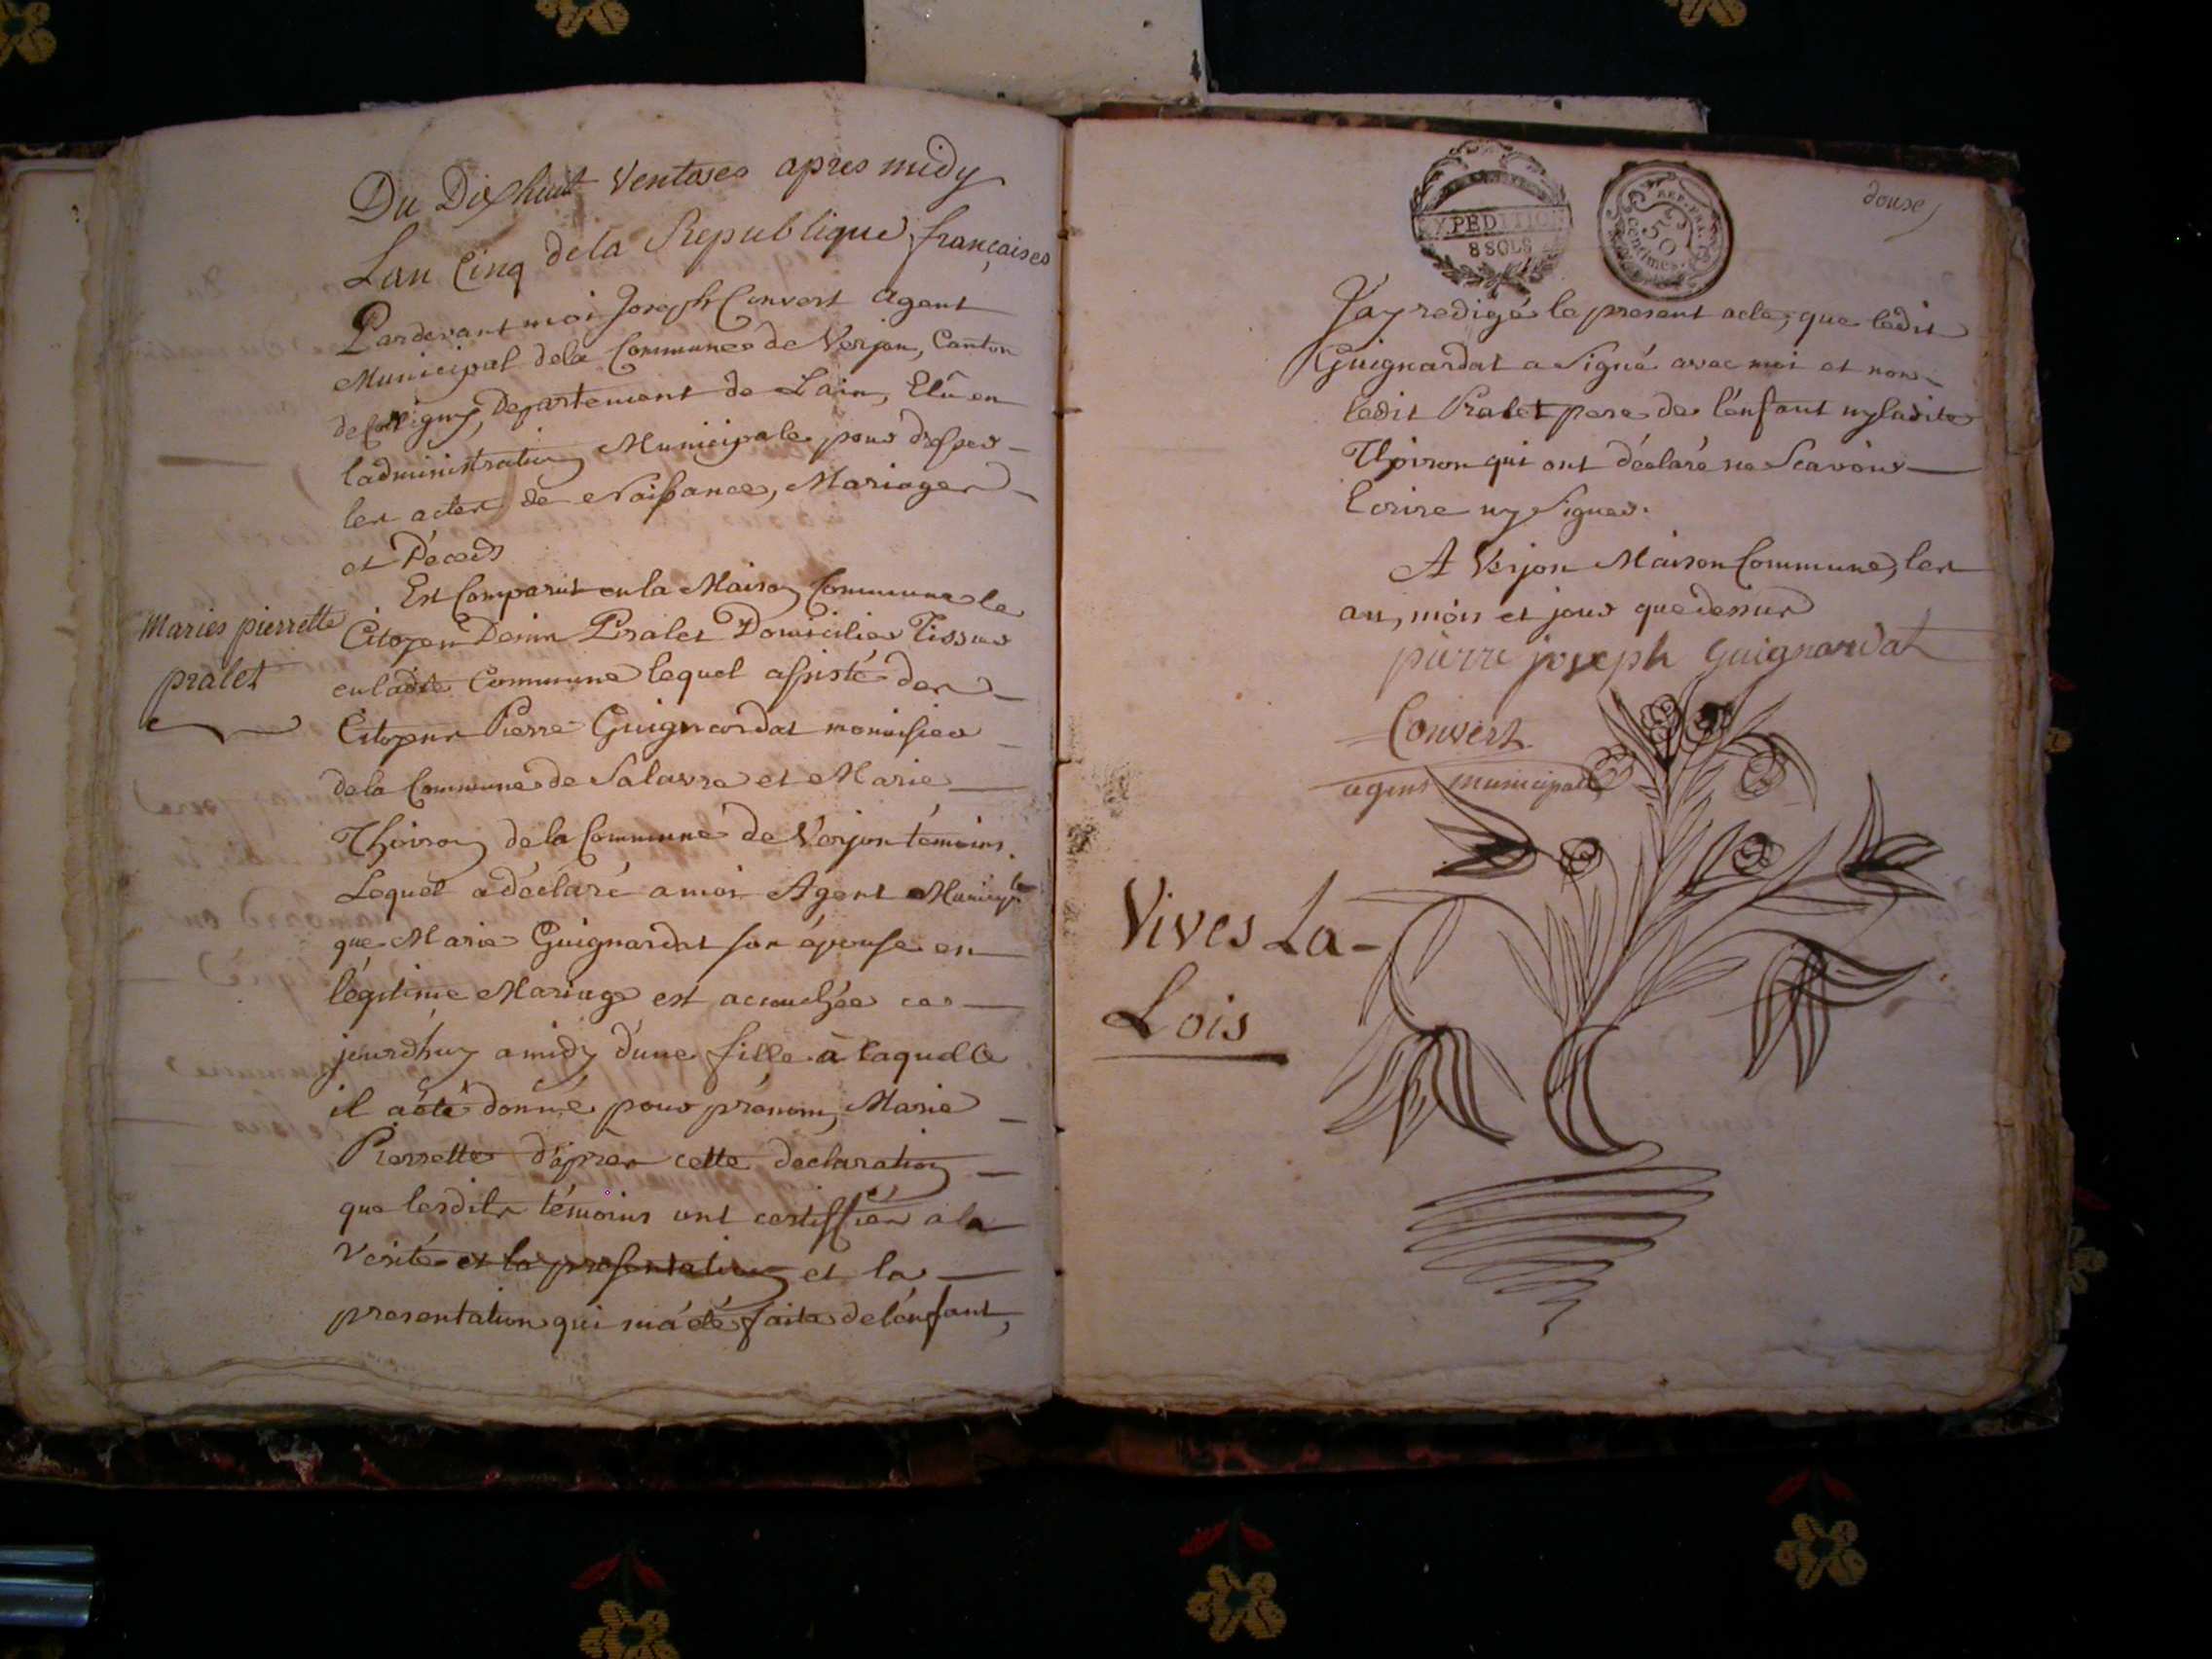 Du Dixhuit Ventoses apres midy
Lan Cinq dela Republique françaises
Pardevant moi Joseph Convert Agent
Municipal dela Communes de Verjon, Canton
de Colligny, Departement de Lain, Elû en
ladministration Municipale pour dresser
les actes de Naissance, Mariages
et Déceds
Est Comparut en la Maison Commune le
Maries pierrette
pralet
Citoyen Denis Pralet Domicilié Tissus
en ladite Commune lequel assisté des
Citoyens Pierre Guignardat
dela Commune de Salavre et Marie
Thoiron de la Commune de Verjon témoins.
Lequel a déclaré a moi Agent Municiple
que Marie Guignardat son épouse en
légitime Mariage est accouchée ce
jourdhuy a midy dune fille à laquelle
il a été donné pour prénom, Marie
Pierrette d'après cette declaration
que lesdits témoins ont certiffier a la
Verité et la presentation et la
presentation qui má été faite de lénfant,
EXPEDITION
8 SOLS
REP. FRA.
50
centimes.
douse
Jay redigé le present acte, que ledit
Guignardat a Signé avec moi et non
ledit Pralet pere de lénfant ny ladite
Thoiron qui ont déclaré ne Scavoir
Ecrire ny Signer.
A Verjon Maison Commune, les
an, mois et jour que dessus
pierre joseph Guignardat
Convert
agent municipal
Vives La-
Lois